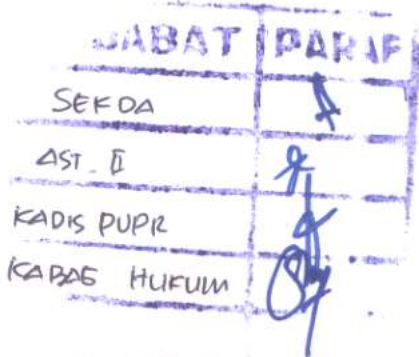 JABAT PARAF
SEKDA
AST. II
KADIS PUPR
KABAG HUKUM